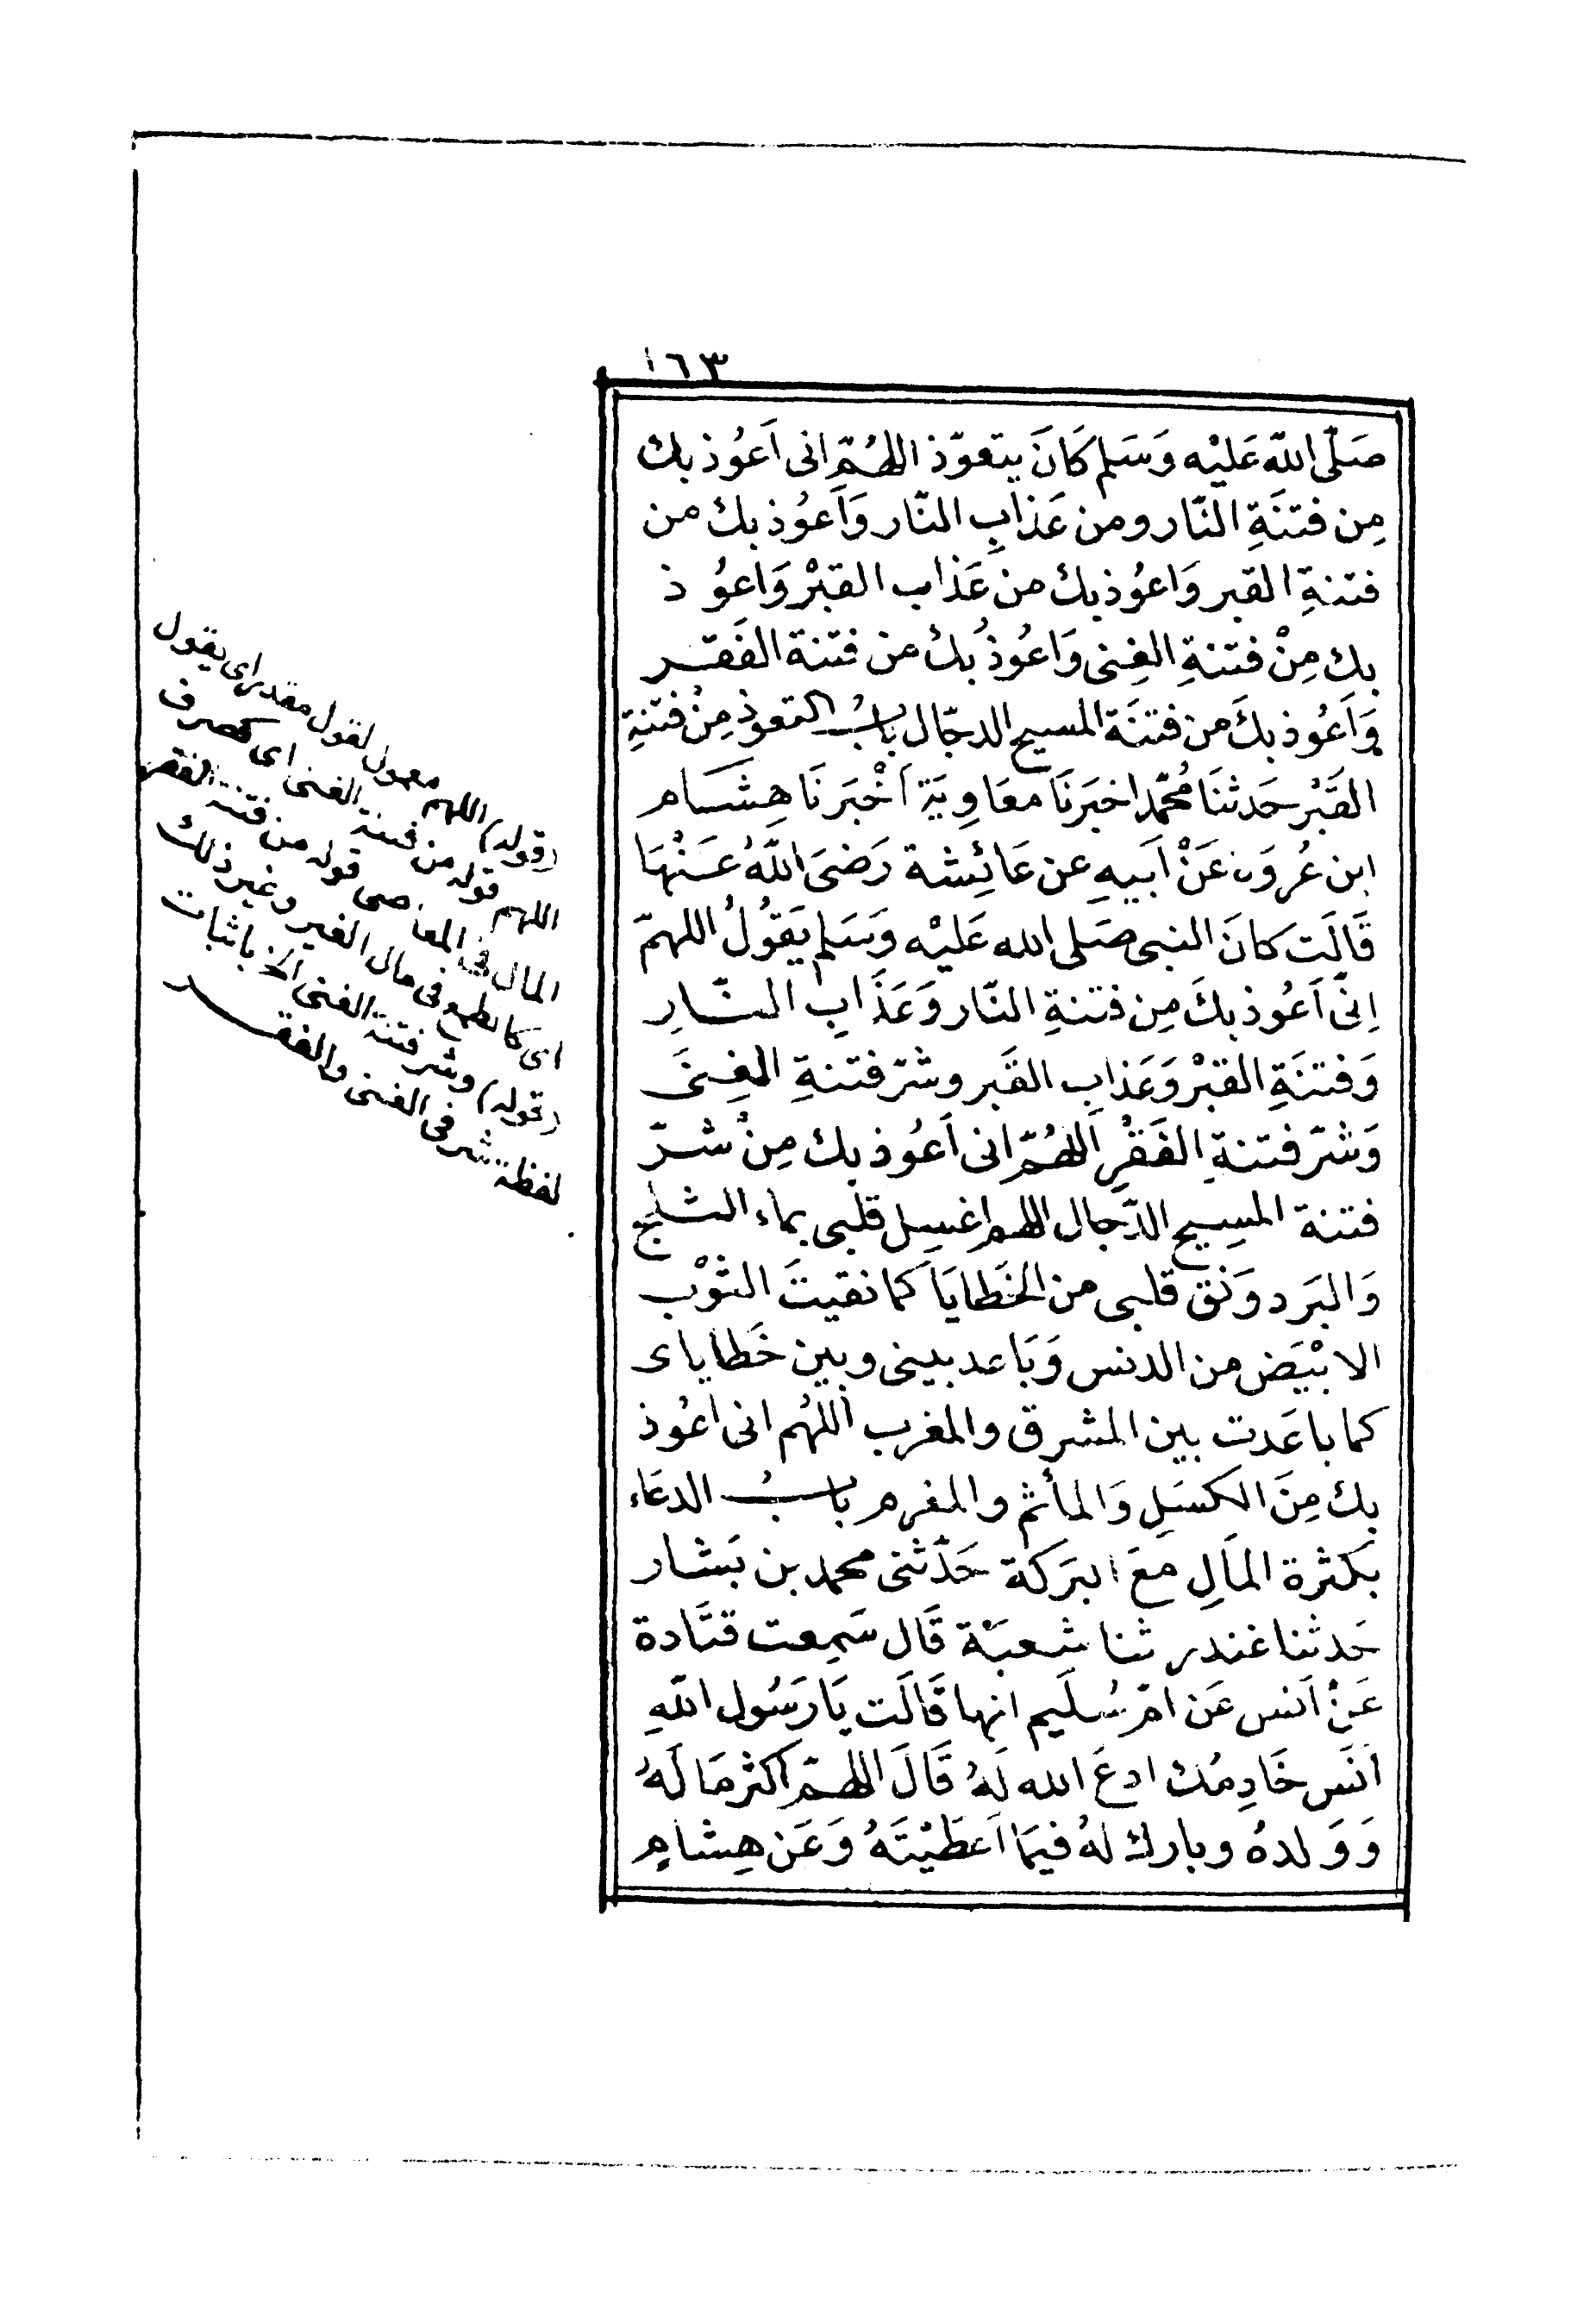 ١٦٣
صَلّى اللّه عَليْه وَسَلم كَانَ يتعوّذ اللهُمّ انى اَعوُذ بك
مِن فتنَةِ النّار ومن عَذابِ النّار وَاَعوُذ بك من
فتنةِ القبر وَاعوُذ بك من عَذاب القبْر وَاعوُ ذ
بك مِنْ فتنةِ الغِنى وَاعوُذُ بكُ من فتنة الفَقـر
وَاَعوُذ بكَ من فتنَة المسيح الدجّال بابُ التعوذ مِنْ فتنةِ
القَبْر حَدثنَا مُحمّد اخبَرنَا معَاوِيَة اَخْبَرنَا هِشَام
ابن عُروَة عَنْ اَبيهِ عن عَائِشة رَضىَ اللّهُ عَـنْهَا
قَالَت كانَ النبى صَلى الله عَليْه وَسَلم يَقوُلُ اللهمّ
اِنّى اَعوُذ بكَ مِن فتنةِ النّار وَعَذَابِ النّـارِ
وَفتنَةِ القبْر وَعَذابِ القَبر وشرّ فتنةِ الغِـنَى
وَشرّ فتنةِ الفَقْرِ اَللهُمّ انى اَعوُذ بك مِنْ شـرّ
فتنة المسِيح الدّجال اللهم اغسِل قلبى بماء الثـلج
وَالبَرد وَنَق قلبى من الخَطايَا كما نقيتَ الثوْب
الابْيَض من الدنس وَبَاعد بينى وبين خَطاياى
كما باعَدت بين المشرق والمغرب اَللهُم انى اعوُذ
بك مِنَ الكسَلِ وَالمأثم والمغرم بابُ الدعَاء
بَكثرة المَالِ معَ البَركة حَدّثنى محمد بن بَشار
حَدثنا غندر ثنا شعبَة قَال سَمِعت قتَادة
عَنْ اَنس عَن امّ سُلَيم انها قَالَت يَا رَسُول اللّهِ
اَنَس خَادِمُك ادعَ الله لَهُ قَالَ اللهمّ اَكثر مَا لَهُ
وَوَلدهُ وبارك لهُ فيمَا اَعطَيْتَهُ وَعَن هِشامٍ
(قوله) اللهم معمول لقول مقدر اى يقول
اللهم قوله من فتنة الغنى اى كصرف
المال فى المعاصى قوله من فتنة الفقر
اى كالطمع فى مال الغير وغير ذلك
(قوله) وشر فتنة الغنى الخ باثبات
لفظة شر فى الغنى والفقـر